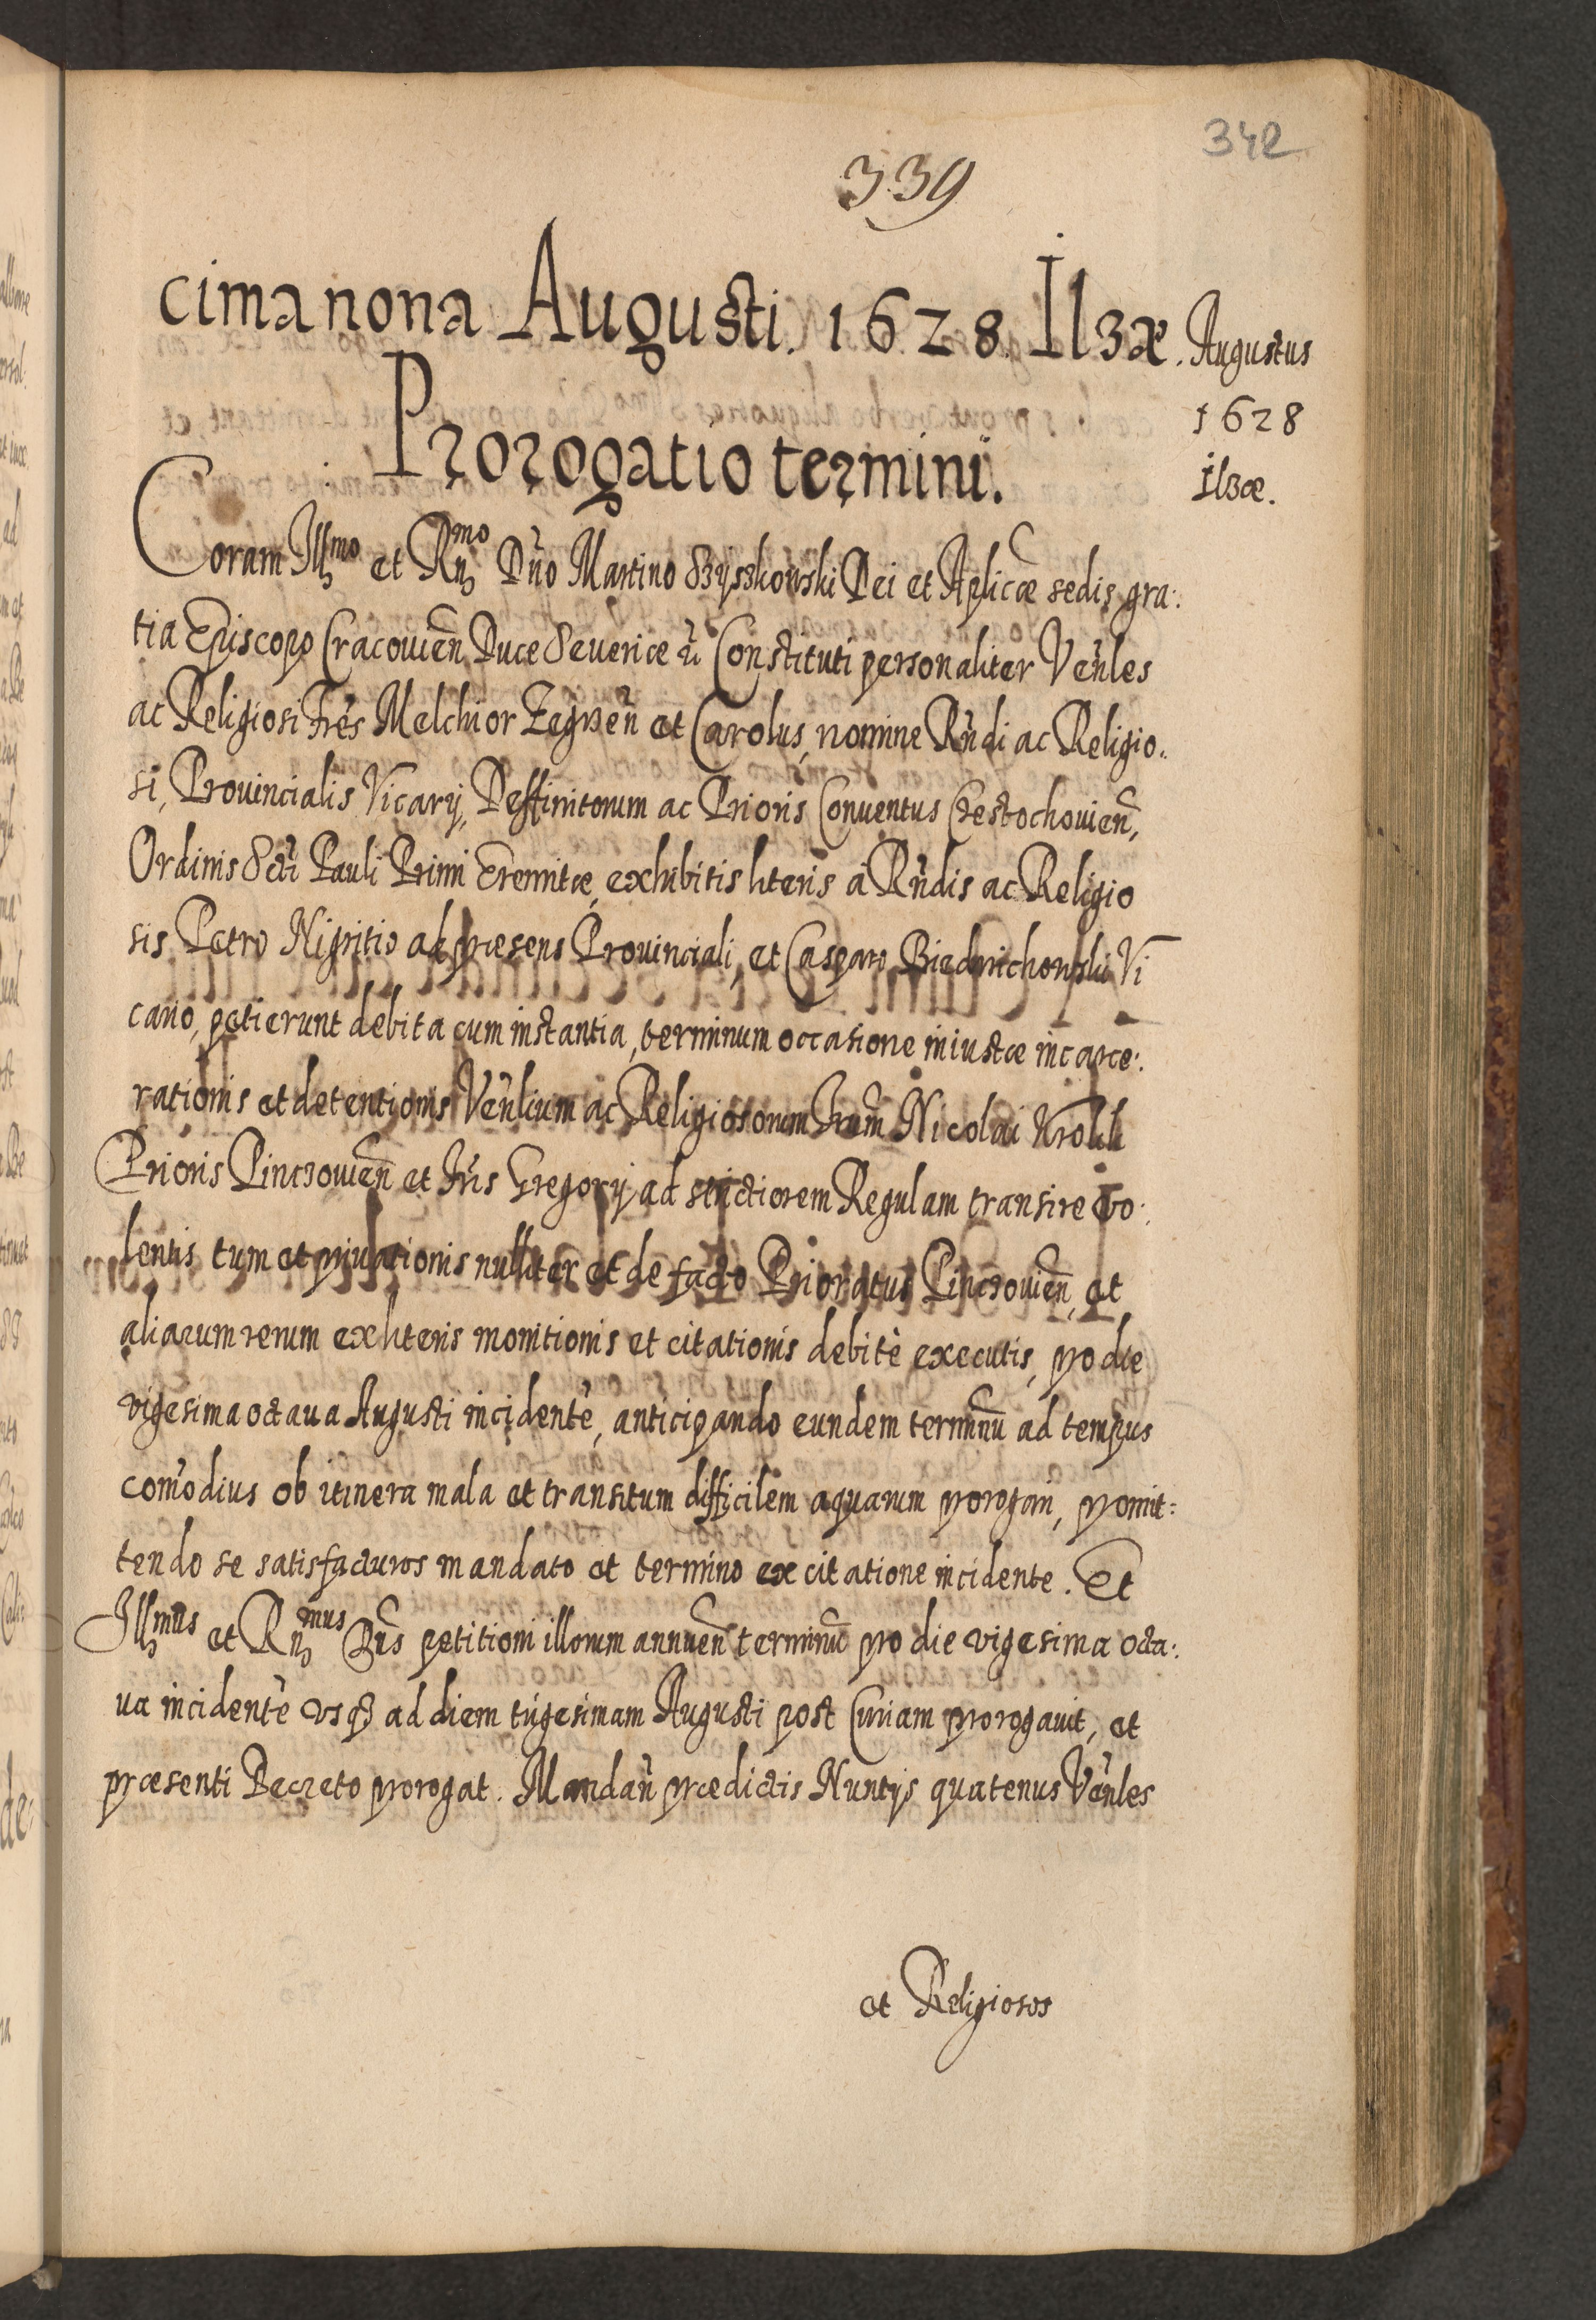 342
339
cima nona Augusti. 1628. Ilzæ. Augustus
1628
Prorogatio termini.
Ilzæ.
Coram Illmo et Rmo Dno Martino Szyszkowski Dei et Aplicæ sedis gra:
tia Episcopo Cracovien Duce Severiæ Constituti personaliter Venles
ac Religiosi Fres Melchior et Carolus, nomine Rndi ac Religio:
si, Provincialis Vicarij, Deffinitorum ac Prioris Conventus Czestochovien,
Ordinis Scti Pauli Primi Eremitæ, exhibitis literis à Rndis ac Religio
sis Petro Nigritio ad præsens Provinciali, et Casparo Biedrichowski Vi
cario, petierunt debita cum instantia, terminum occasione iniustæ incarce:
rationis et detentionis Venlium ac Religiosorum Frum Nicolai Krolik
Prioris Pinczovien et Fris Gregorij ad strictiorem Regulam transire vo:
lentis tum et privationis nulliter et de facto Prioratus Pinczovien, et
aliarum rerum ex literis monitionis et citationis debitè executis, pro die
vigesima octaua Augusti incidente, anticipando eundem terminu ad tempus
comodius ob itinera mala et transitum difficilem aquarum prorogari, promit=
tendo se satisfacturos mandato et termino ex citatione incidente. Et
Illmus et Rmus Dns petitioni illorum annuen terminu pro die vigesima octa:
ua incidente usq3 ad diem trigesimam Augusti post Curiam prorogauit, et
præsenti Decreto prorogat. Mandan prædictis Nuntijs quatenus Venles
et Religiosos